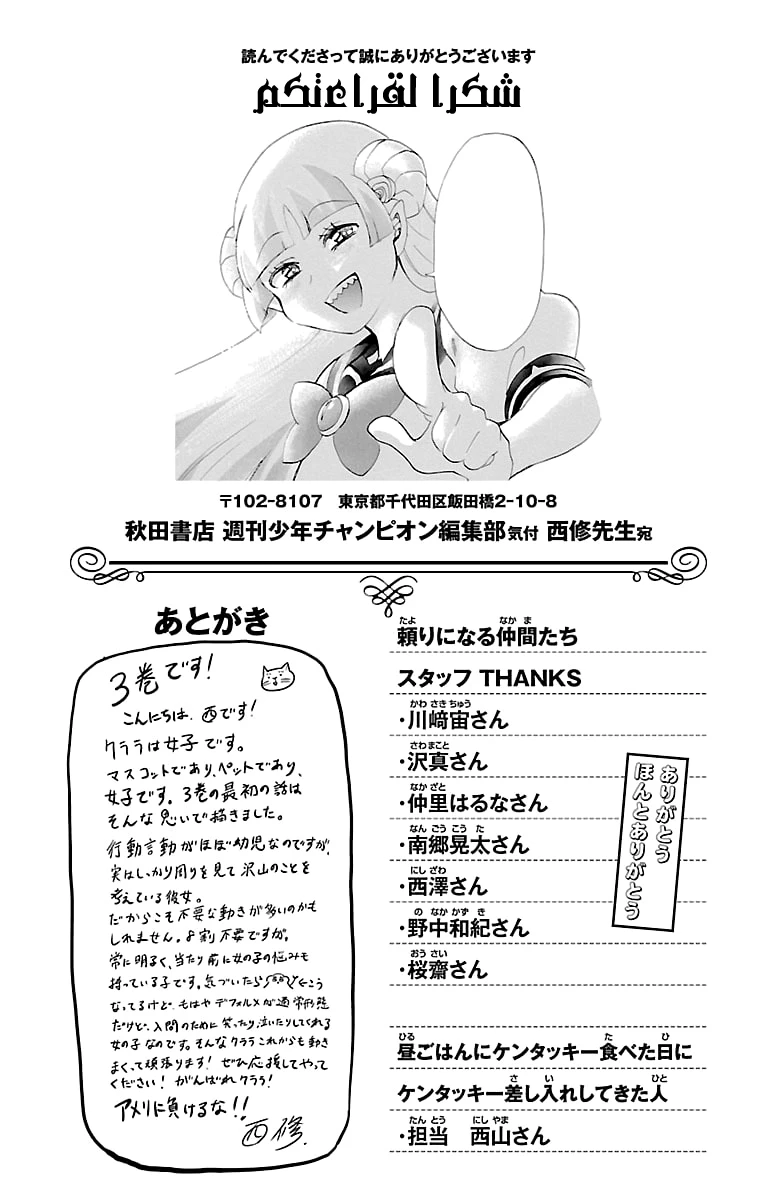 読んでくださって誠にありがとうございます
شكرا لقراءتكم
〒102-8107　東京都千代田区飯田橋2-10-8
秋田書店 週刊少年チャンピオン編集部気付 西修先生宛
あとがき
3巻です!
こんにちは、西です!
クララは女子です。
マスコットであり、ペットであり、
女子です。3巻の最初の話は
そんな思いで描きました。
行動言動がほぼ幼児なのですが、
実はしっかり周りを見て沢山のことを
考えている彼女。
だからこそ不要な動きが多いのかも
しれません。8割不要ですが。
常に明るく、当たり前に女の子の悩みも
持っている子です。気づいたら こう
なってるけど、もはやデフォルメが通常形態
だけど、入間のために笑ったり泣いたりしてくれる
女の子なのです。そんなクララこれからも動き
まくって頑張ります! ぜひ応援してやって
ください! がんばれクララ!
アメリに負けるな!!
西修.
頼りになる仲間たち
スタッフ THANKS
・川﨑宙さん
・沢真さん
・仲里はるなさん
・南郷晃太さん
・西澤さん
・野中和紀さん
・桜齋さん
ありがとう
ほんとありがとう
昼ごはんにケンタッキー食べた日に
ケンタッキー差し入れしてきた人
・担当　西山さん